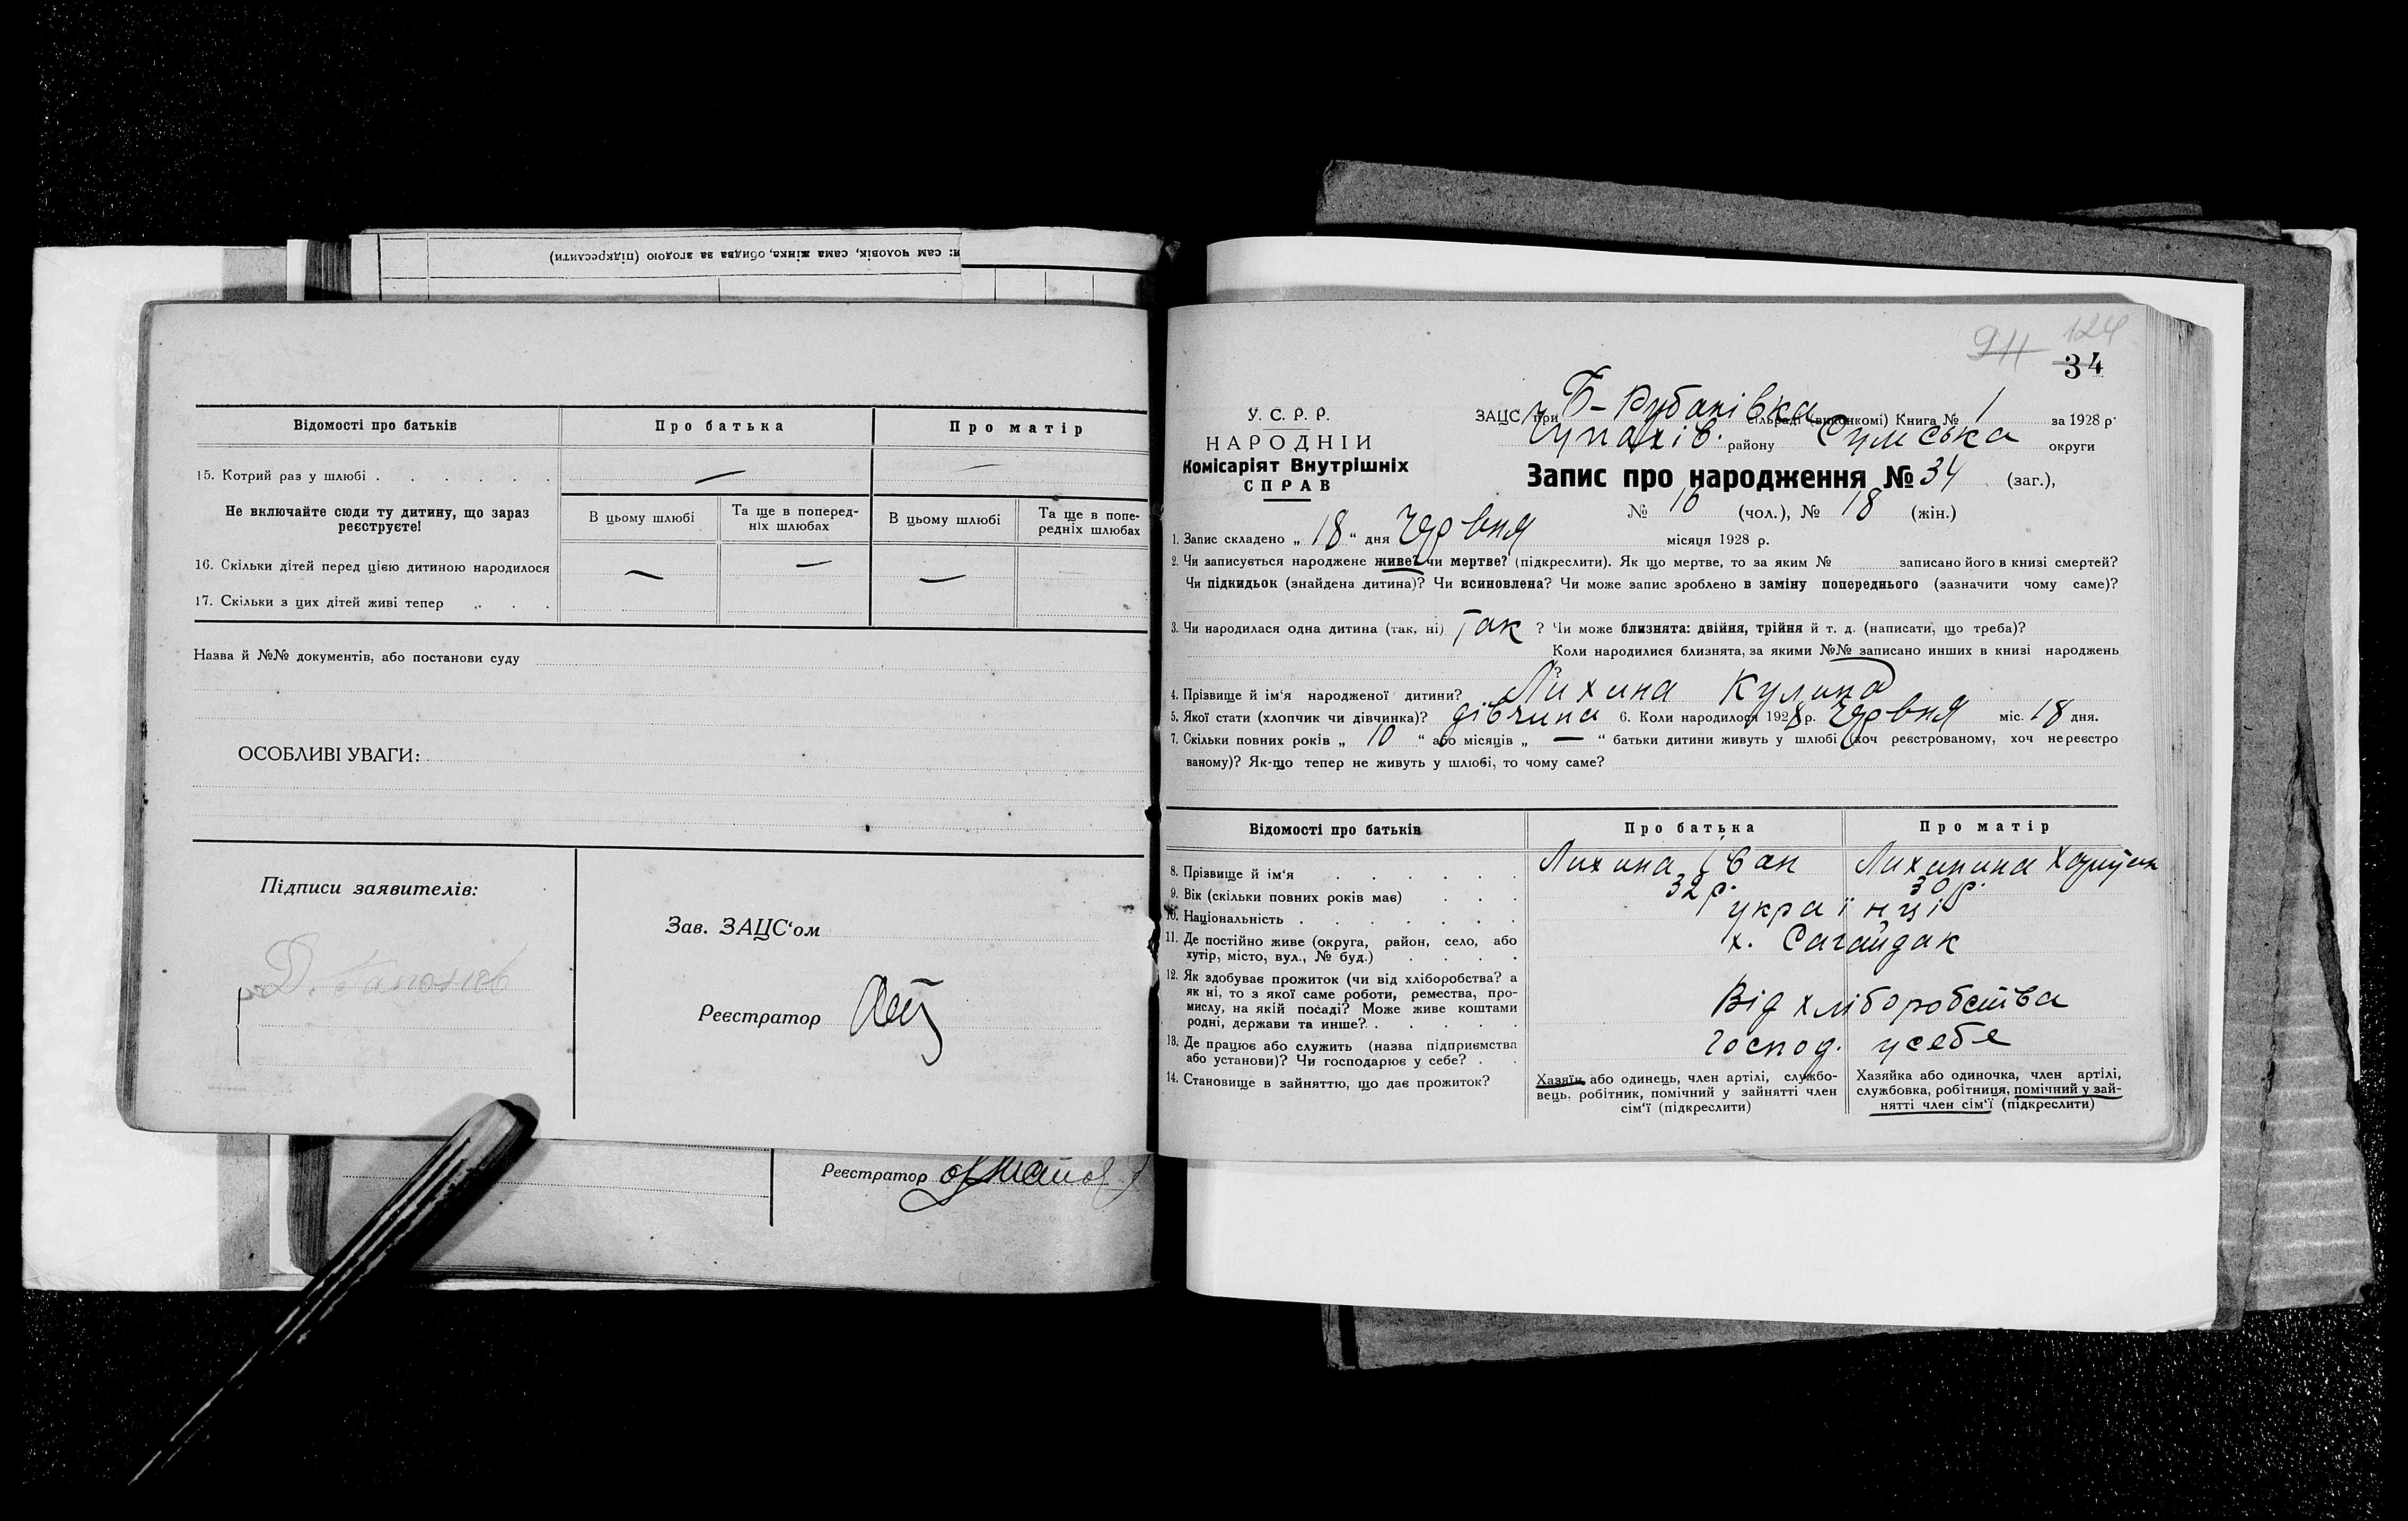 я: сам чоловік, сама жінка, обидва за згодою (підкреслити)
Відомості про батьків
Про батька
Про матір
15. Котрий раз у шлюбі . . . . . . —
Не включайте сюди ту дитину, що зараз реєструєте!
В цьому шлюбі
Та ще в поперед-
ніх шлюбах
В цьому шлюбі
Та ще в попе-
редніх шлюбах
16. Скільки дітей перед цією дитиною народилося — — —
17. Скільки з цих дітей живі тепер
Назва й №№ документів, або постанови суду
ОСОБЛИВІ УВАГИ:
Підписи заявителів:
Зав. ЗАЦС‘ом
Реєстратор
Реєстратор
94 124
34
У. С. Р. Р.
НАРОДНІЙ
Комісаріят Внутрішніх
СПРАВ
ЗАЦС при Б-Рубанівка сільраді (виконкомі) Книга № 1 за 1928 р.
Чупахів. району Сумська округи
Запис про народження № 34 (заг.),
№ 16 (чол.), № 18 (жін.)
1. Запис складено „ 18 “ дня Червня місяця 1928 р.
2. Чи записується народжене живе? чи мертве? (підкреслити). Як що мертве, то за яким № записано його в книзі смертей?
Чи підкидьок (знайдена дитина)? Чи всиновлена? Чи може запис зроблено в заміну попереднього (зазначити чому саме)?
3. Чи народилася одна дитина (так, ні) Так ? Чи може близнята: двійня, трійня й т. д. (написати, що треба)?
Коли народилися близнята, за якими №№ записано инших в книзі народжень
4. Прізвище й ім‘я народженої дитини? Лихина Кулина
5. Якої стати (хлопчик чи дівчинка)? дівчина 6. Коли народилося 1928 р. Червня міс. 18 дня.
7. Скільки повних років „ 10 “ або місяців „ — “ батьки дитини живуть у шлюбі (хоч реєстрованому, хоч нереєстро
ваному)? Як-що тепер не живуть у шлюбі, то чому саме?
Відомості про батьків
Про батька
Про матір
8. Прізвище й ім‘я . . . . . . Лихина Іван Лихинина
9. Вік (скільки повних років має) . . . 32 р. 30 р.
10. Національність . . . . . . . українці
11. Де постійно живе (округа, район, село, або
хутір, місто, вул., № буд.) . . . . х. Сагайдак
12. Як здобуває прожиток (чи від хліборобства? а
як ні, то з якої саме роботи, ремества, про-
мислу, на якій посаді? Може живе коштами
родні, держави та инше?. . . . . . Від хліборобства
13. Де працює або служить (назва підприємства
або установи)? Чи господарює у себе? . . Господ. у себе
14. Становище в зайняттю, що дає прожиток?
Хазяїн або одинець, член артілі, службо-
вець, робітник, помічний у зайнятті член
сім‘ї (підкреслити)
Хазяйка або одиночка, член артілі,
службовка, робітниця, помічний у зай-
нятті член сім‘ї (підкреслити)